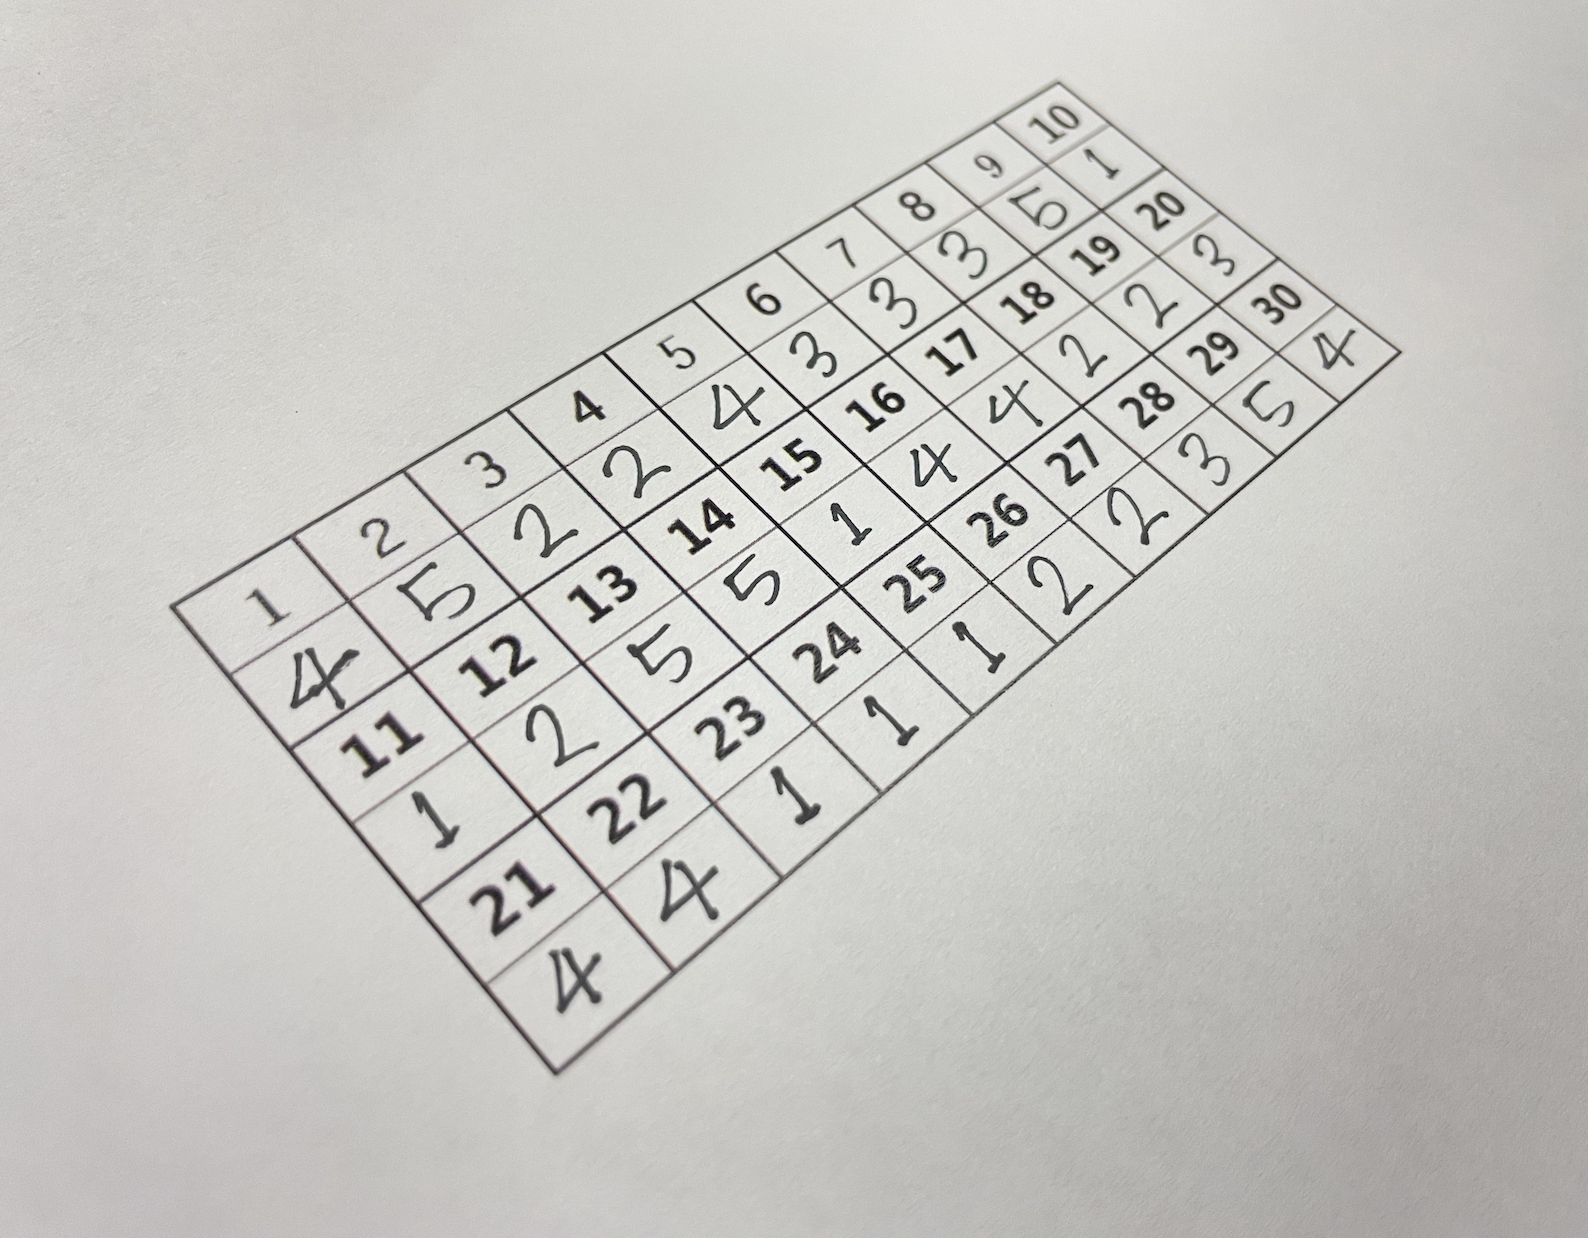 1 2 3 4 5 6 7 8 9 10
4 5 2 2 4 3 3 3 5 1
11 12 13 14 15 16 17 18 19 20
1 2 5 5 1 4 4 2 2 3
21 22 23 24 25 26 27 28 29 30
4 4 1 1 1 2 2 3 5 4